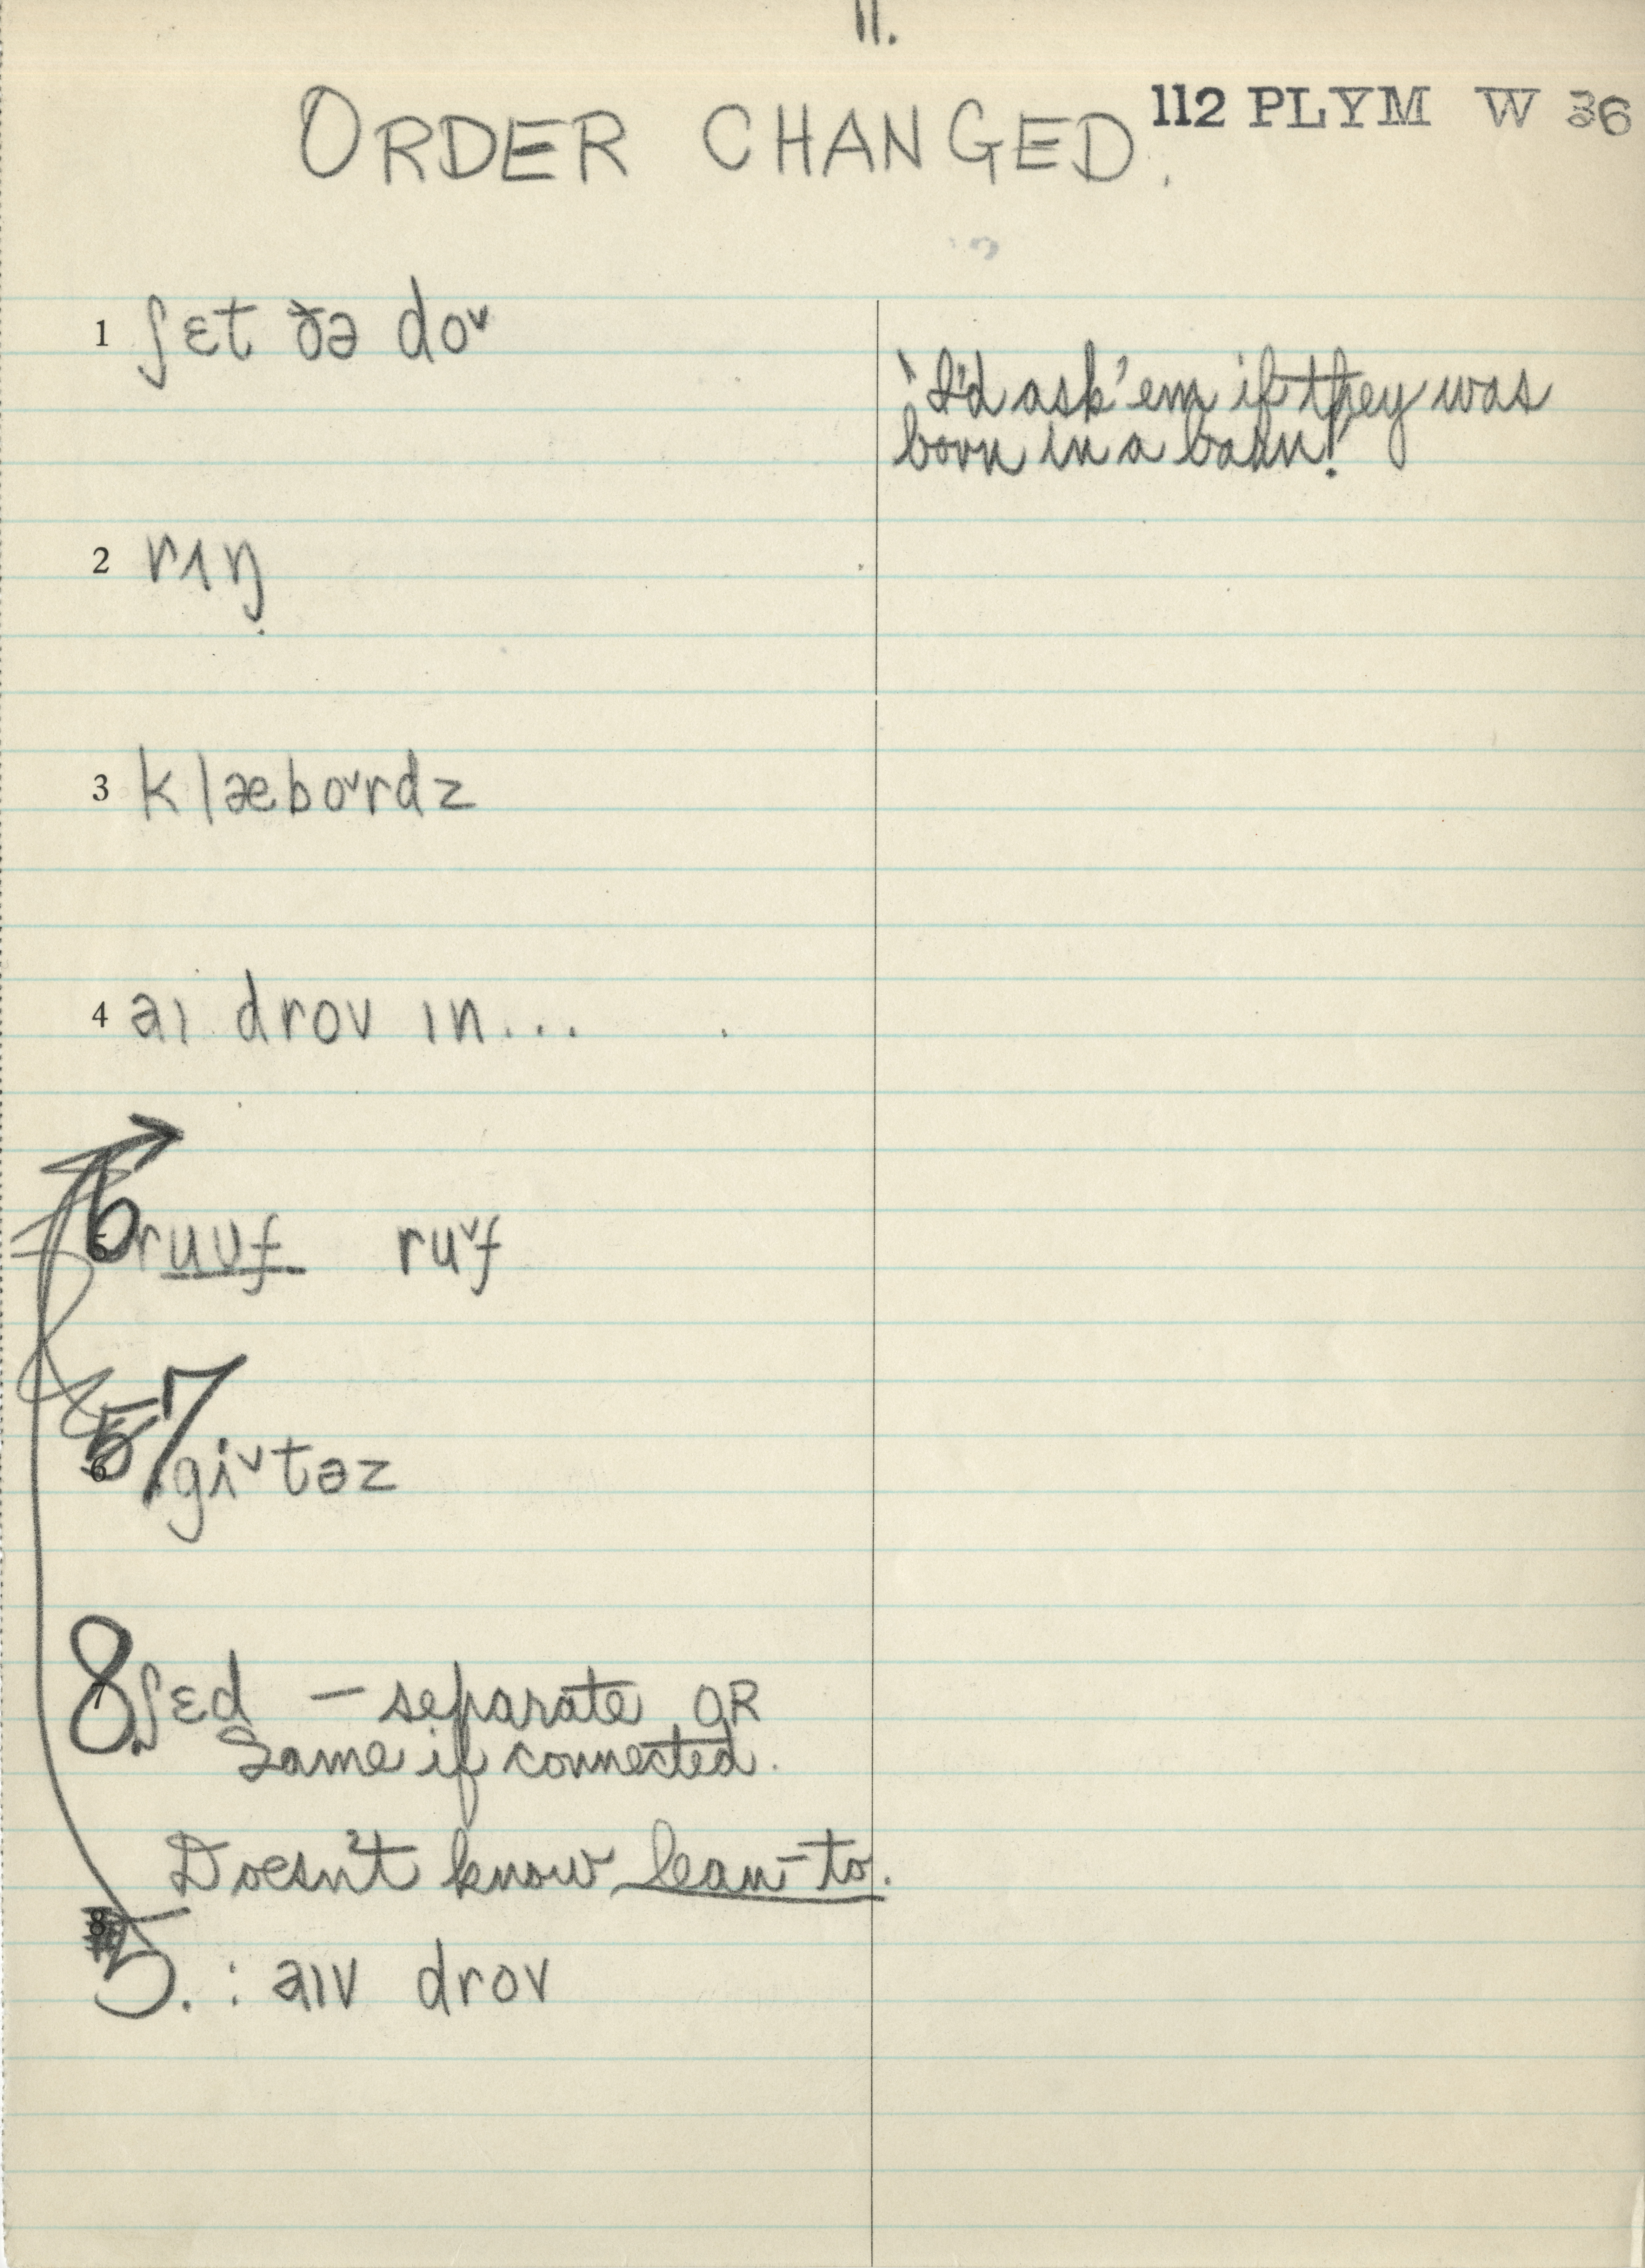 11.
ORDER CHANGED.
112 PLYM W 36
1 ʃɛt ðə doᵛ
'I'd ask 'em if they was
born in a bahn!'
2 rɪŋ
3 klæboᵛrdz
4 aɪ drov ɪn...
6 ruuf ruᵛf
7 giᵛtəz
8. ʃɛd – separate OR
Same if connected.
Doesn't know lean-to.
5. : aɪv drov